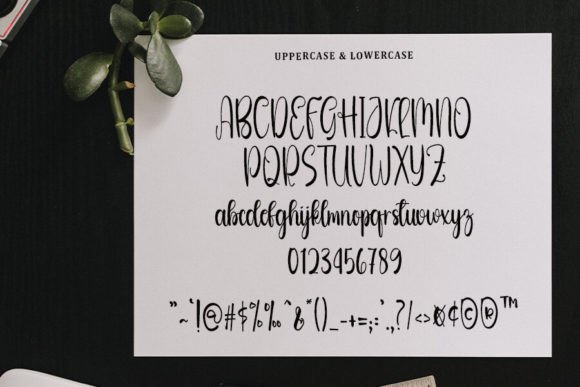 UPPERCASE & LOWERCASE
ABCDEFGHIJKLMNO
PQRSTUVWXYZ
abcdefghijklmnopqrstuvwxyz
0123456789
"~`!@#$%%^&*()_-+=;:'.,?/<>¤¢©®™